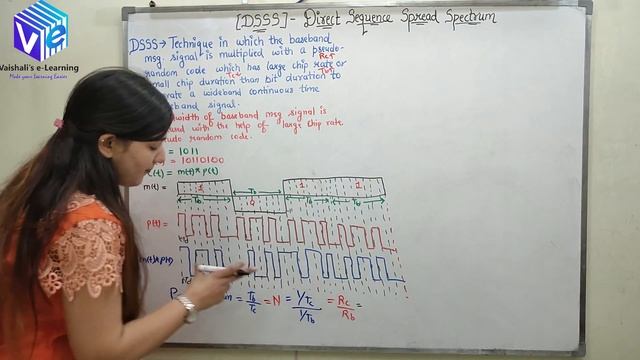 Vaishali's e-Learning
Make your Learning Easier
[DSSS] - Direct Sequence Spread Spectrum
DSSS → Technique in which the baseband
msg. signal is multiplied with a pseudo-
Rc↑
random code which has large chip rate or
Tc↓
small chip duration than bit duration to
a wideband continuous time
signal.
of baseband msg signal is
with the help of large chip rate
random code.
= 1011
= 10110100
(t) = m(t) × p(t)
m(t) =
1
0
1
1
Tb
Tb
Tb
Tb
p(t) =
m(t) × p(t)
= Tb/Tc = N = 1/Tc / 1/Tb = Rc/Rb =